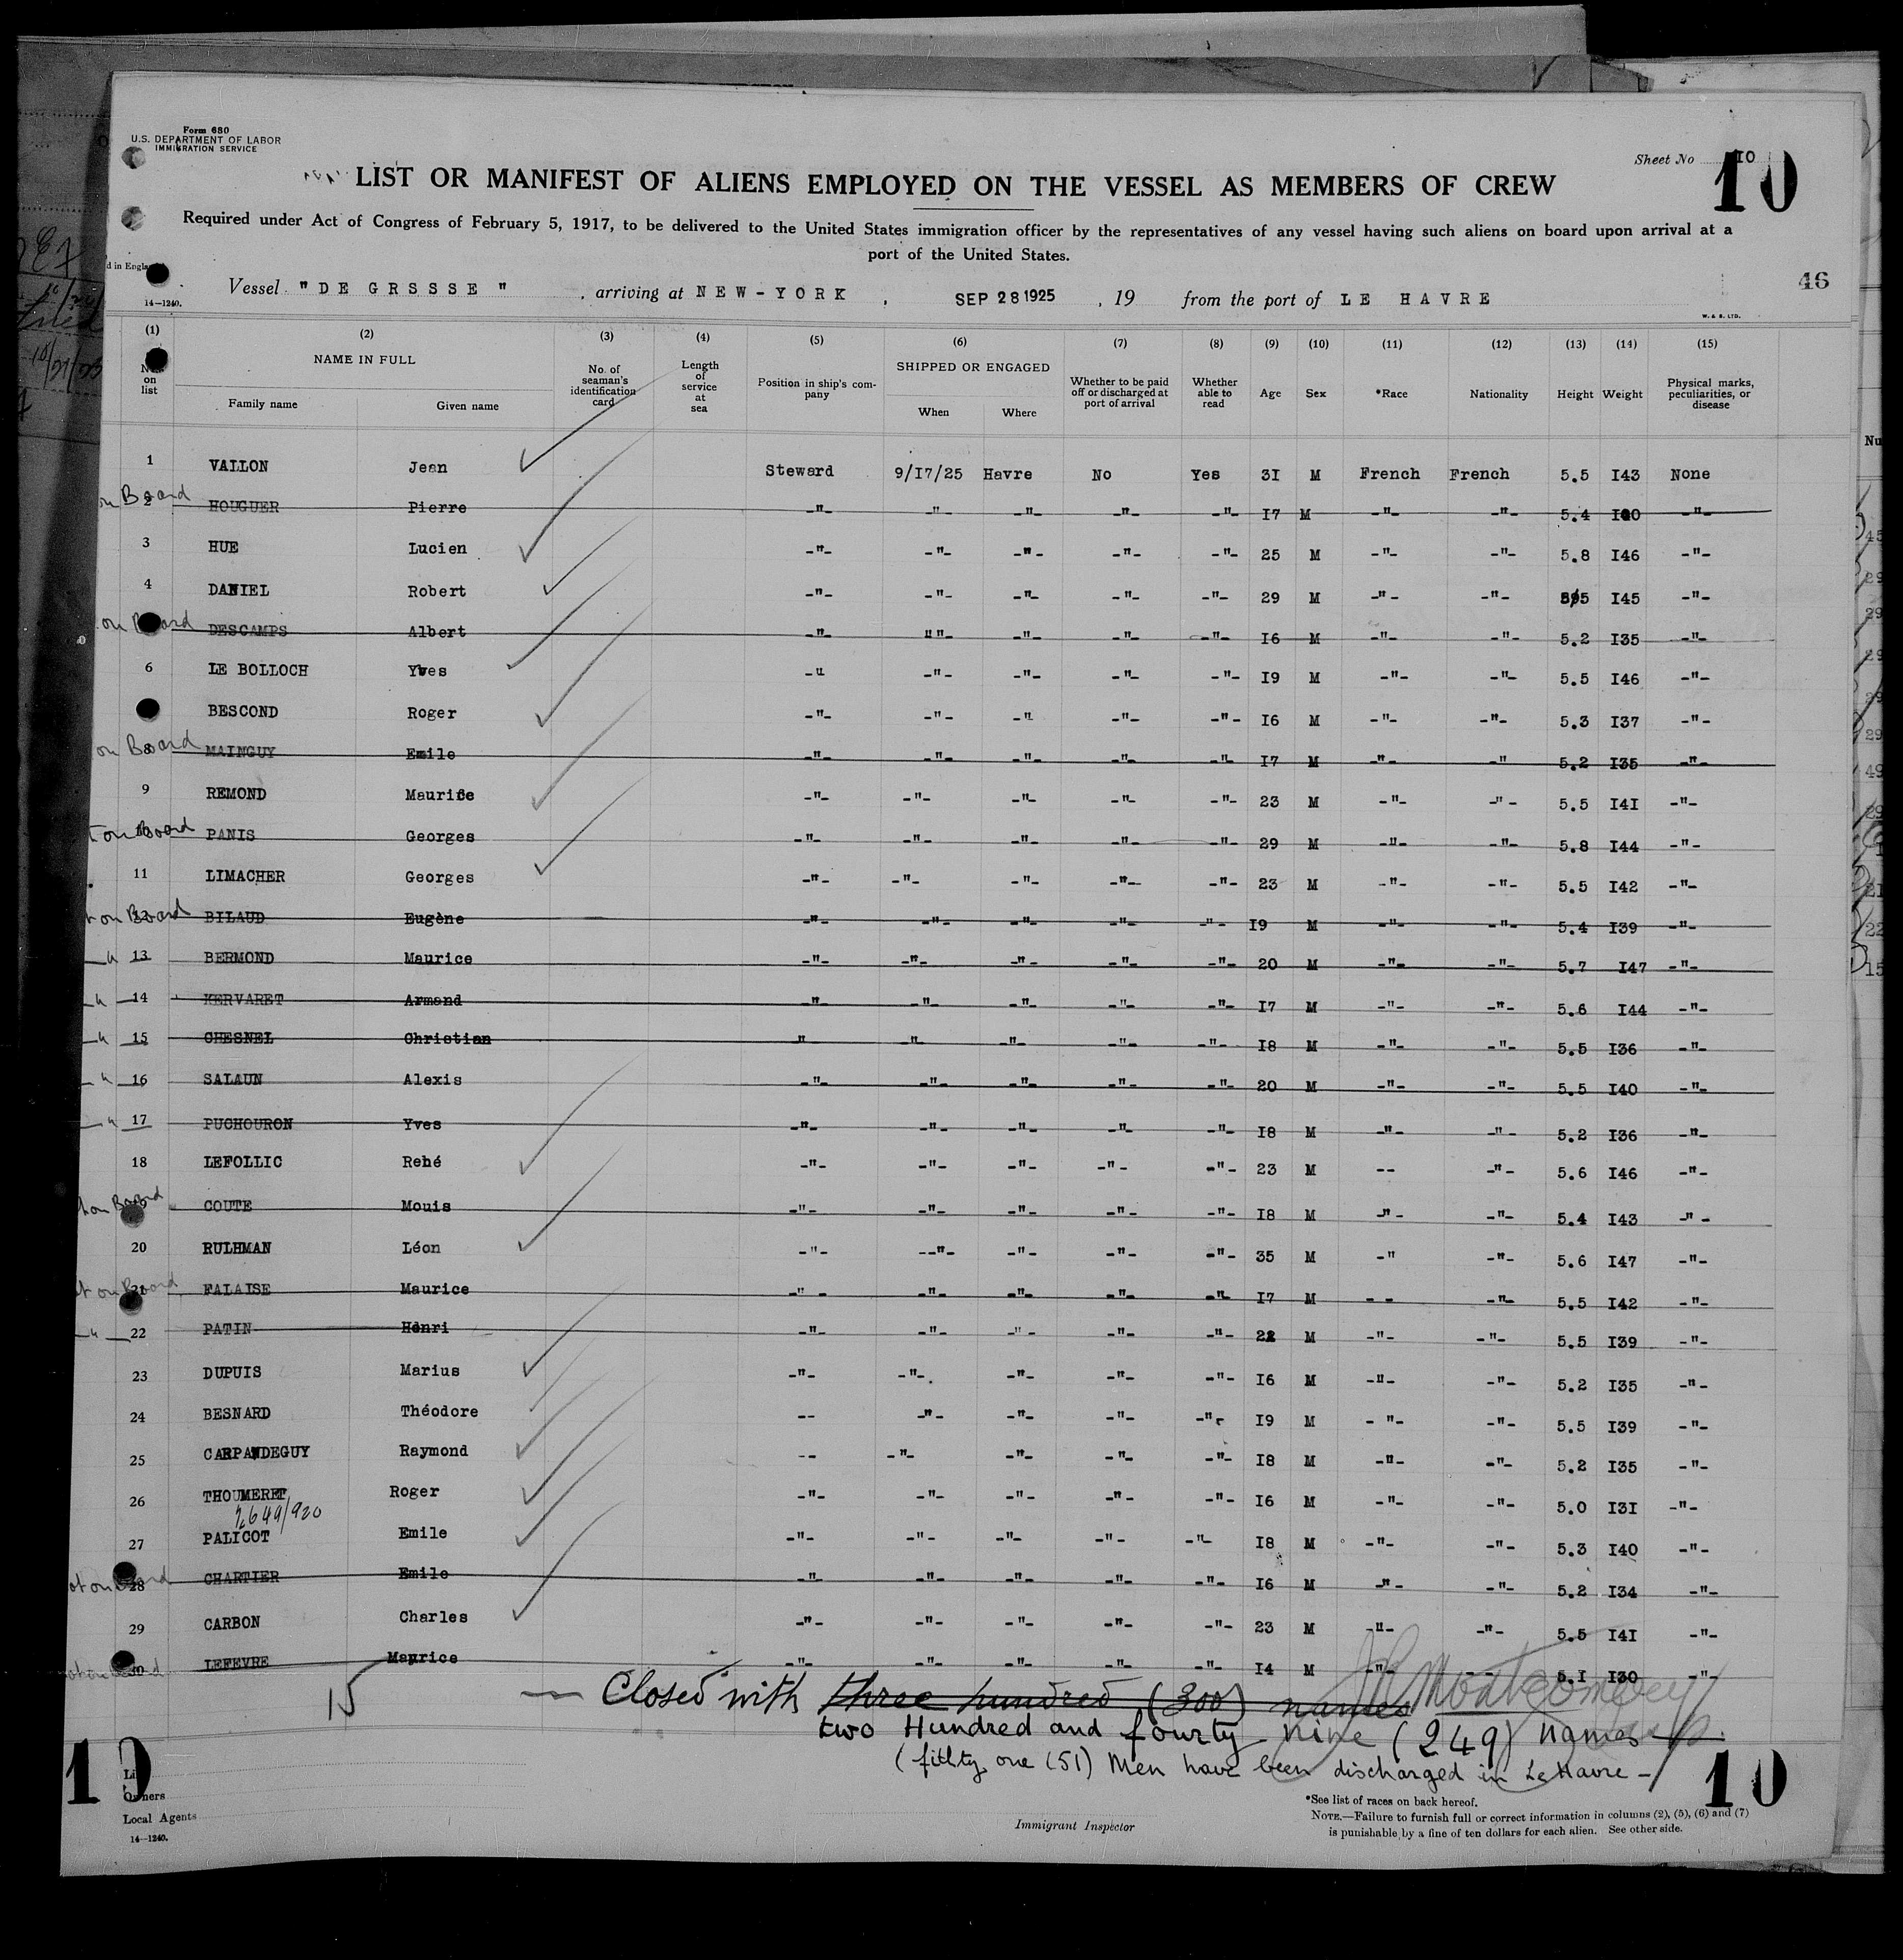 Form 680
U.S. DEPARTMENT OF LABOR
IMMIGRATION SERVICE
Sheet No 10
10
LIST OR MANIFEST OF ALIENS EMPLOYED ON THE VESSEL AS MEMBERS OF CREW
Required under Act of Congress of February 5, 1917, to be delivered to the United States immigration officer by the representatives of any vessel having such aliens on board upon arrival at a
port of the United States.
d in Engla
46
14—1240.
Vessel "DE GRSSSE", arriving at NEW-YORK, SEP 28 1925, 19 from the port of LE HAVRE
W. & S. LTD.
(1) (2) (3) (4) (5) (6) (7) (8) (9) (10) (11) (12) (13) (14) (15)
No. on list NAME IN FULL Family name Given name No. of seaman's identification card Length of service at sea Position in ship's company SHIPPED OR ENGAGED When Where Whether to be paid off or discharged at port of arrival Whether able to read Age Sex *Race Nationality Height Weight Physical marks, peculiarities, or disease
1 VALLON Jean Steward 9/I7/25 Havre No Yes 3I M French French 5.5 I43 None
on Board 2 HOUGUER Pierre -"- -"- -"- -"- -"- I7 M -"- -"- 5.4 -"-
3 HUE Lucien -"- -"- -"- -"- -"- 25 M -"- -"- 5.8 I46 -"-
4 DANIEL Robert -"- -"- -"- -"- -"- 29 M -"- -"- I45 -"-
on Board DESCAMPS Albert -"- ""- -"- -"- -"- I6 M -"- -"- 5.2 I35 -"-
6 LE BOLLOCH Yves -" -"- -"- -"- -"- I9 M -"- -"- 5.5 I46 -"-
BESCOND Roger -"- -"- -" -"- -"- I6 M -"- -"- 5.3 I37 -"-
on Board 8 MAINGUY Emile -"- -"- -"- -"- -"- I7 M -"- -" 5.2 I35 -"-
9 REMOND Maurice -"- -"- -"- -"- -"- 23 M -"- -"- 5.5 I4I -"-
t on Board 10 PANIS Georges -"- -"- -"- -"- -"- 29 M -"- -"- 5.8 I44 -"-
11 LIMACHER Georges -"- -"- -"- -"- -"- 23 M -"- -"- 5.5 I42 -"-
t on Board 12 BILAUD Eugène -"- -"- -"- -"- -"- I9 M -"- -"- 5.4 I39 -"-
—"— 13 BERMOND Maurice -"- -"- -"- -"- -"- 20 M -"- -"- 5.7 I47 -"-
—"— 14 KERVARET Armand -"- -"- -"- -"- -"- I7 M -"- -"- 5.6 I44 -"-
—"— 15 CHESNEL Christian " -"- -"- -"- -"- I8 M -"- -"- 5.5 I36 -"-
—"— 16 SALAUN Alexis -"- -"- -"- -"- -"- 20 M -"- -"- 5.5 I40 -"-
—"— 17 PUCHOURON Yves -"- -"- -"- -"- -"- I8 M -"- -"- 5.2 I36 -"-
18 LEFOLLIC René -"- -"- -"- -"- -"- 23 M -- -"- 5.6 I46 -"-
t on Board COUTE Mouis -"- -"- -"- -"- -"- I8 M -"- -"- 5.4 I43 -"-
20 RULHMAN Léon -"- --"- -"- -"- -"- 35 M -" -"- 5.6 I47 -"-
t on Board 21 FALAISE Maurice -"- -"- -"- -"- -"- I7 M -- -"- 5.5 I42 -"-
—"— 22 PATIN Henri -"- -"- -"- -"- -"- M -"- -"- 5.5 I39 -"-
23 DUPUIS Marius -"- -"- -"- -"- -"- I6 M -"- -"- 5.2 I35 -"-
24 BESNARD Théodore -- -"- -"- -"- -"- I9 M -"- -"- 5.5 I39 -"-
25 CARPANDEGUY Raymond -- -"- -"- -"- -"- I8 M -"- -"- 5.2 I35 -"-
26 THOUMERET Roger -"- -"- -"- -"- -"- I6 M -"- -"- 5.0 I3I -"-
2649/920
27 PALICOT Emile -"- -"- -"- -"- -"- I8 M -"- -"- 5.3 I40 -"-
ot on Board 28 CHARTIER Emile -"- -"- -"- -"- -"- I6 M -"- -"- 5.2 I34 -"-
29 CARBON Charles -"- -"- -"- -"- -"- 23 M -"- -"- 5.5 I4I -"-
not on Board 30 LEFEVRE Maurice -"- -"- -"- -"- -"- I4 M -"- -- 5.I I30 -"-
15
— Closed with three hundred (300) names
Montgomery
two Hundred and fourty nine (249) names
(fifhty one (51) Men have been discharged in Le Havre —
10
10
Li
Owners
Local Agents
14—1240.
Immigrant Inspector
*See list of races on back hereof.
NOTE.—Failure to furnish full or correct information in columns (2), (5), (6) and (7)
is punishable by a fine of ten dollars for each alien. See other side.